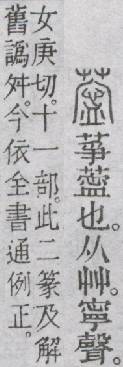 也。从艸。寧聲。
女庚切。十一部。此二篆及解
舊譌舛。今依全書通例正。